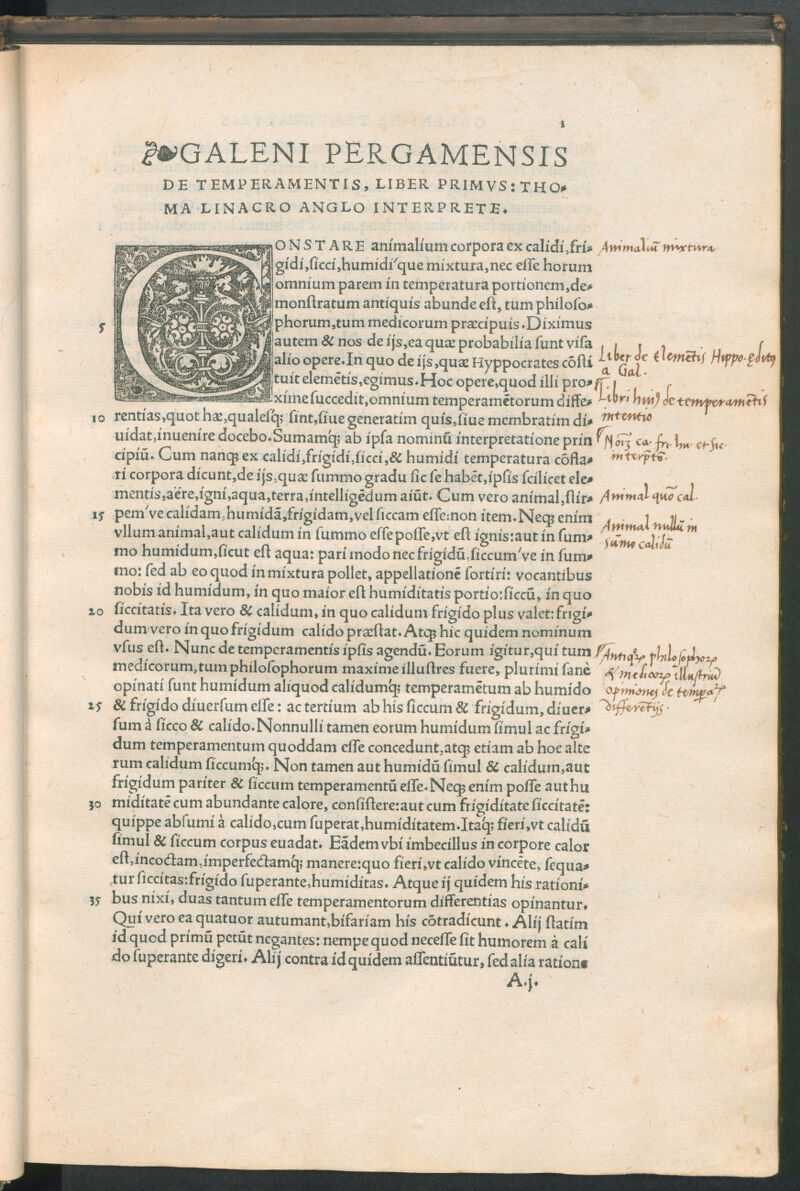 1
GALENI PERGAMENSIS
DE TEMPERAMENTIS, LIBER PRIMVS: THO-
MA LINACRO ANGLO INTERPRETE.
CONSTARE animalium corpora ex calidi, fri-
gidi, sicci, humidi'que mixtura, nec esse horum
omnium parem in temperatura portionem, de-
monstratum antiquis abunde est, tum philoso-
5 phorum, tum medicorum præcipuis. Diximus
autem & nos de ijs, ea quæ probabilia sunt visa
alio opere. In quo de ijs, quæ Hyppocrates cõsti
tuit elemẽtis, egimus. Hoc opere, quod illi pro-
xime succedit, omnium temperamẽtorum diffe-
10 rentias, quot hæ, qualesq; sint, siue generatim quis, siue membratim di-
uidat, inuenire docebo. Sumamq; ab ipsa nominũ interpretatione prin
cipiũ. Cum nanq; ex calidi, frigidi, sicci, & humidi temperatura cõsta-
ri corpora dicunt, de ijs, quæ summo gradu sic se habẽt, ipsis scilicet ele-
mentis, aëre, igni, aqua, terra, intelligẽdum aiũt. Cum vero animal, stir-
15 pem've calidam, humidã, frigidam, vel siccam esse: non item. Neq; enim
vllum animal, aut calidum in summo esse posse, vt est ignis: aut in sum-
mo humidum, sicut est aqua: pari modo nec frigidũ, siccum've in sum-
mo: sed ab eo quod in mixtura pollet, appellationẽ sortiri: vocantibus
nobis id humidum, in quo maior est humiditatis portio: siccũ, in quo
20 siccitatis. Ita vero & calidum, in quo calidum frigido plus valet: frigi-
dum vero in quo frigidum calido præstat. Atq; hic quidem nominum
vsus est. Nunc de temperamentis ipsis agendũ. Eorum igitur, qui tum
medicorum, tum philosophorum maxime illustres fuere, plurimi sanè
opinati sunt humidum aliquod calidumq; temperamẽtum ab humido
25 & frigido diuersum esse: ac tertium ab his siccum & frigidum, diuer-
sum à sicco & calido. Nonnulli tamen eorum humidum simul ac frigi-
dum temperamentum quoddam esse concedunt, atq; etiam ab hoc alte
rum calidum siccumq;. Non tamen aut humidũ simul & calidum, aut
frigidum pariter & siccum temperamentũ esse. Neq; enim posse aut hu
30 miditatẽ cum abundante calore, consistere: aut cum frigiditate siccitatẽ:
quippe absumi à calido, cum superat, humiditatem. Itaq; fieri, vt calidũ
simul & siccum corpus euadat. Eãdem vbi imbecillus in corpore calor
est, incoctam, imperfectamq; manere: quo fieri, vt calido vincẽte, sequa-
tur siccitas: frigido superante, humiditas. Atque ij quidem his rationi-
35 bus nixi, duas tantum esse temperamentorum differentias opinantur.
Qui vero ea quatuor autumant, bifariam his cõtradicunt. Alij statim
id quod primũ petũt negantes: nempe quod necesse sit humorem à cali
do superante digeri. Alij contra id quidem assentiũtur, sed alia ratione
A.j.
Animaliũ mixtura.
Liber de elemẽtis Hippo.
a Gal.
Libri huiꝰ de temperamẽtis
intentio
ca. fri. hu. et sic.
Animal quõ cal.
Animal nullũ in
sũmo calidũ
Antiqꝝ philosophoꝝ
& medicoꝝ illustriũ
opiniones de
differẽtijs.